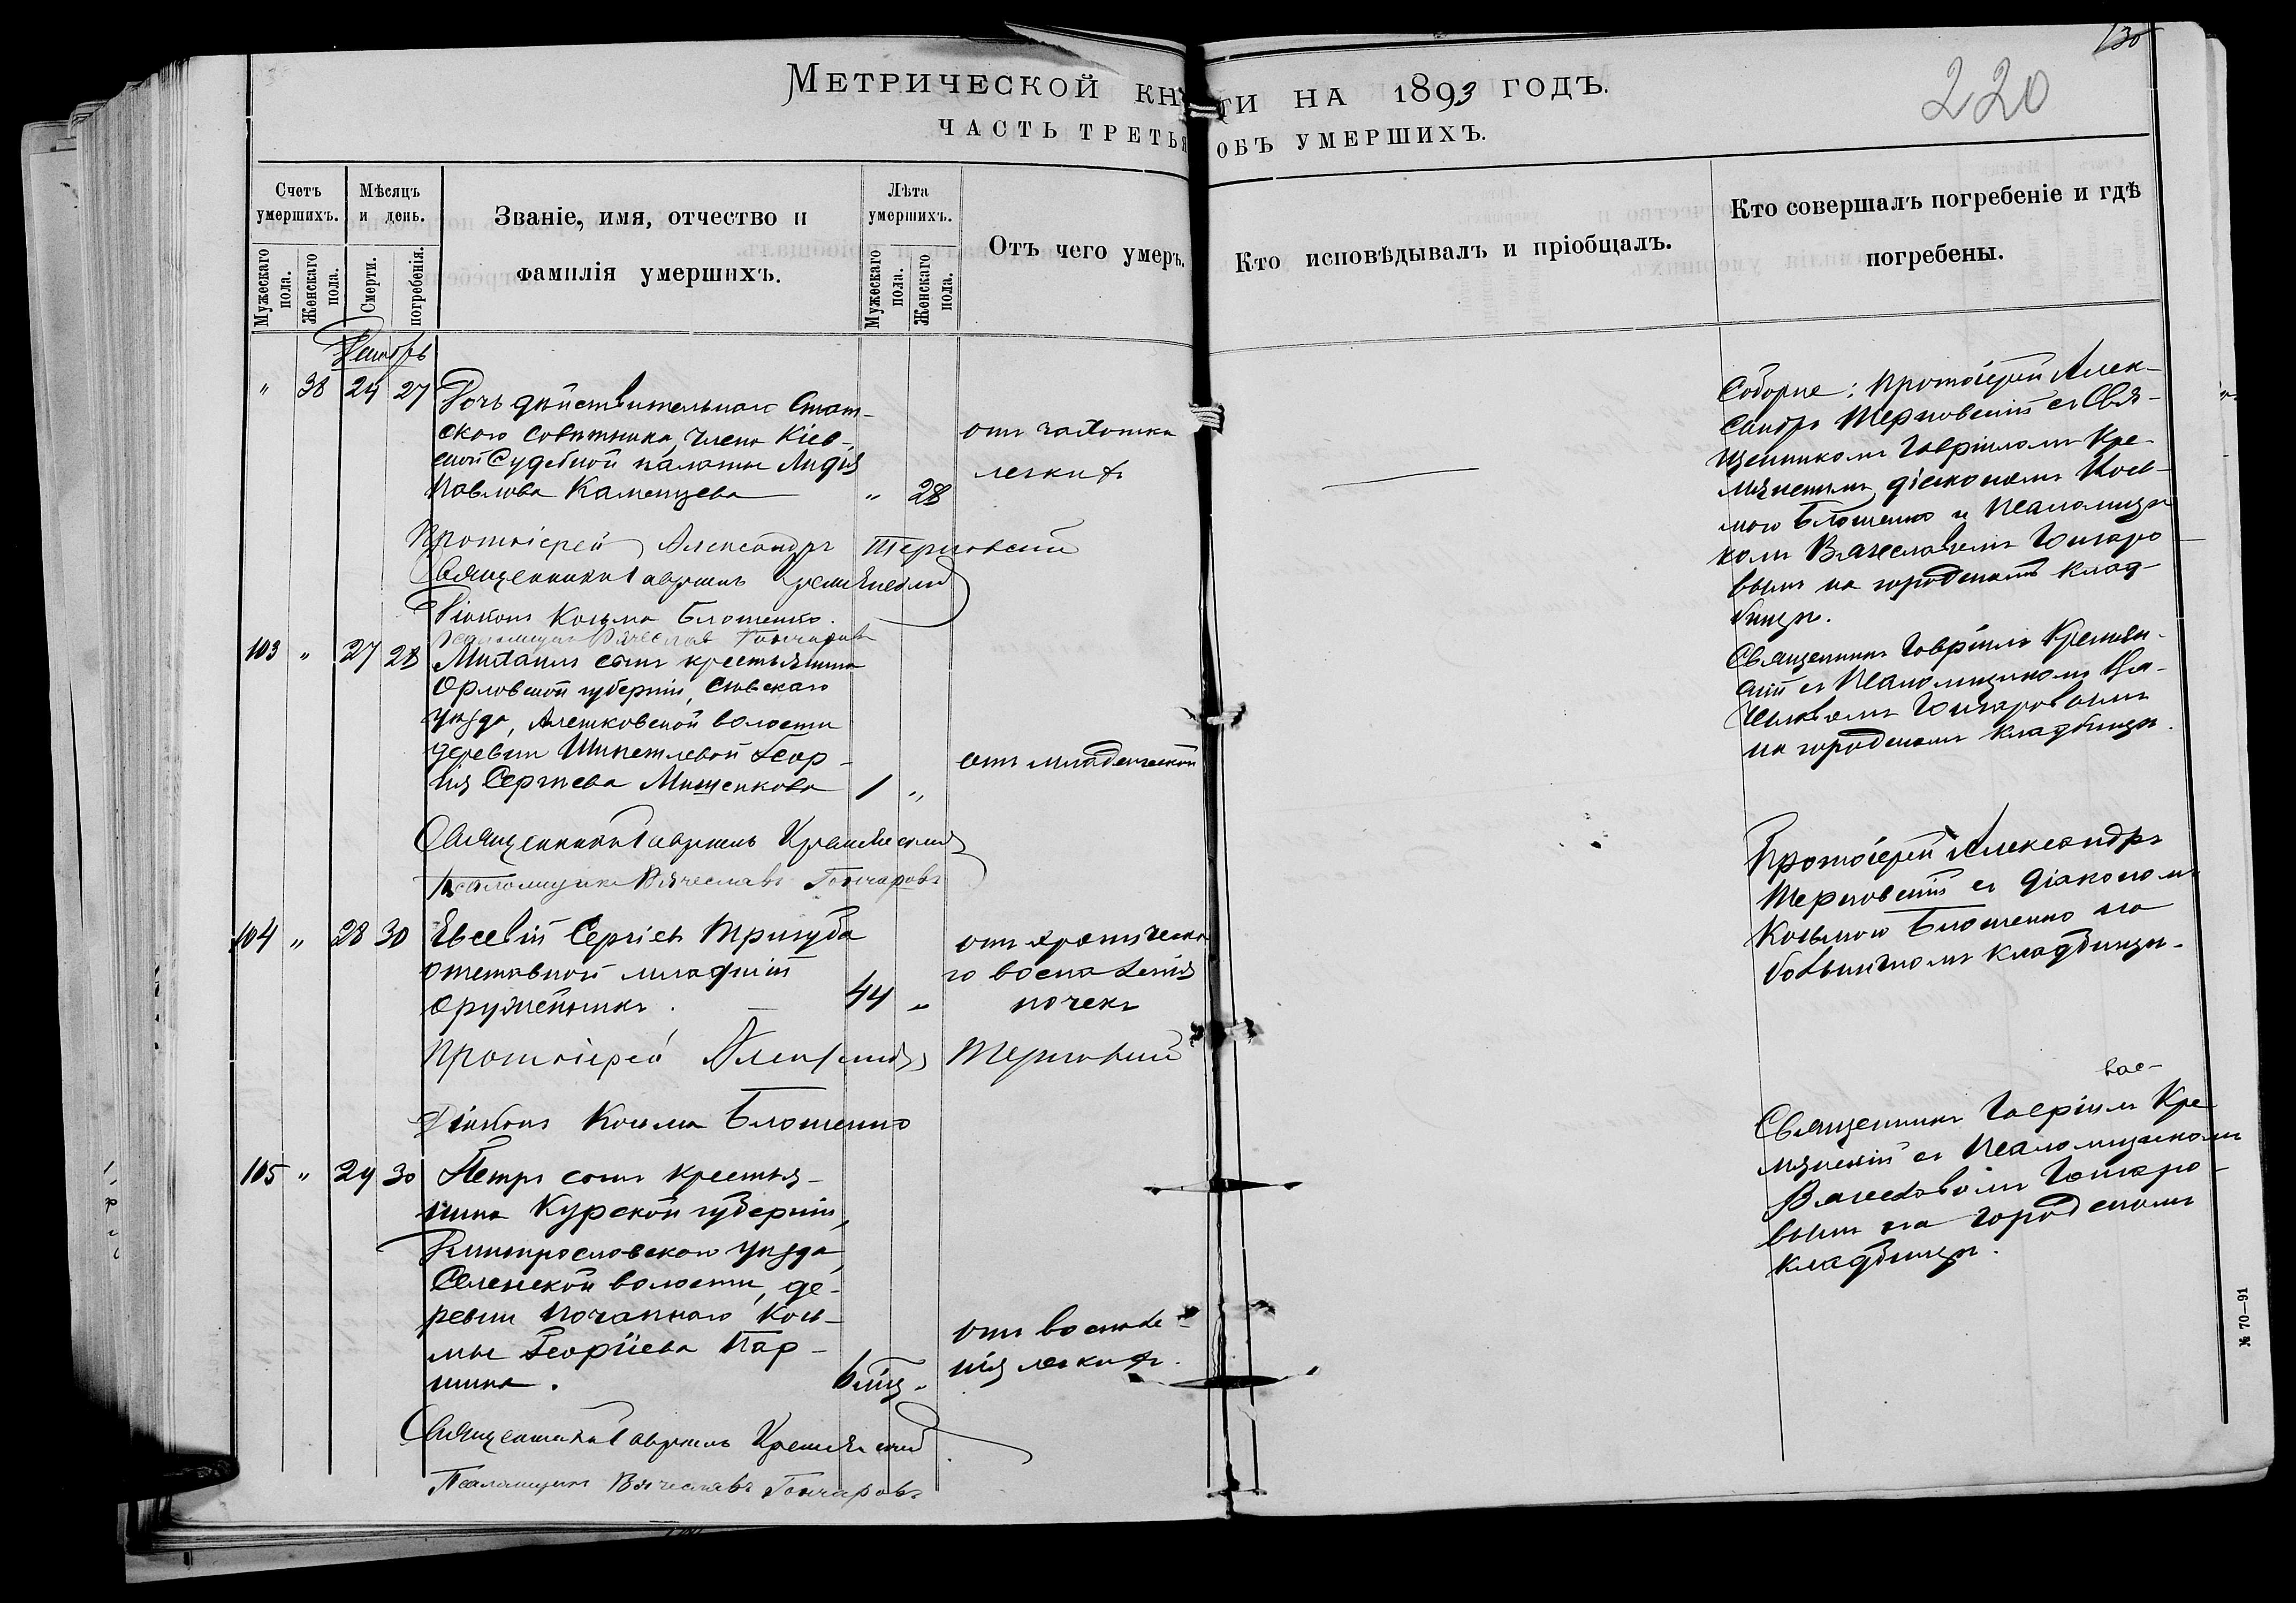 130
220
Метрической книги на 1893 годъ.
Часть третья объ умершихъ.
Счетъ умершихъ.
Мужескаго пола.
Женскаго пола.
Мѣсяцъ и день.
Смерти.
погребенія.
Званіе, имя, отчество и
фамилія умершихъ.
Лѣта умершихъ.
Мужескаго пола.
Женскаго пола.
Отъ чего умеръ.
Кто исповѣдывалъ и пріобщалъ.
Кто совершалъ погребеніе и гдѣ
погребены.
Декабрь
" 38 24 27
Дочь дѣйствительнаго Стат-
скаго совѣтника, члена Кіев-
ской Судебной палаты Лидія
Павлова Каменцева " 28
отъ чахотки
легкихъ
Соборне: Протоіерей Алек-
сандръ Терновскій съ Свя-
щенникомъ Гавріиломъ Кре-
мянскимъ, діакономъ Кось-
мою Блошенко и Псаломщи-
комъ Вячеславомъ Гончаро-
вымъ на городскомъ клад-
бищѣ.
Протоіерей Александръ Терновскій
Священникъ Гавріилъ Кремянскій
Діаконъ Косьма Блошенко.
Псаломщикъ Вячеславъ Гончаровъ
103 " 27 28
Михаилъ сынъ крестьянина
Орловской губерніи, Сѣвскаго
уѣзда, Алешковской волости
деревни Шипетлевой Геор-
гія Сергѣева Мишенкова 1 "
отъ младенческой
Священникъ Гавріилъ Кремян-
скій съ Псаломщикомъ Вя-
чеславомъ Гончаровымъ
на городскомъ кладбищѣ.
Священникъ Гавріилъ Кремянскій
Псаломщикъ Вячеславъ Гончаровъ
104 " 28 30
Евсевій Сергіевъ Тригуба
отставной младшій
оружейникъ. 44 "
отъ хроническа
го воспаленія
почекъ
Протоіерей Александръ
Терновскій съ діакономъ
Косьмою Блошенко на
кладбищѣ.
Протоіерей Александръ Терновскій
Діаконъ Косьма Блошенко
105 " 29 30
Петръ сынъ крестья-
нина Курской губерніи,
Дмитрославскаго уѣзда,
Селенской волости, де-
ревни Почапнаго Кось-
мы Георгіева Пар-
шина. 6 мѣс. "
отъ воспале-
нія легкихъ.
Священникъ Гавріилъ Кре
мянскій съ Псаломщикомъ
Вячеславомъ Гончаро-
вымъ на городскомъ
кладбищѣ.
Священникъ Гавріилъ Кремянскій
Псаломщикъ Вячеславъ Гончаровъ
№ 70—91